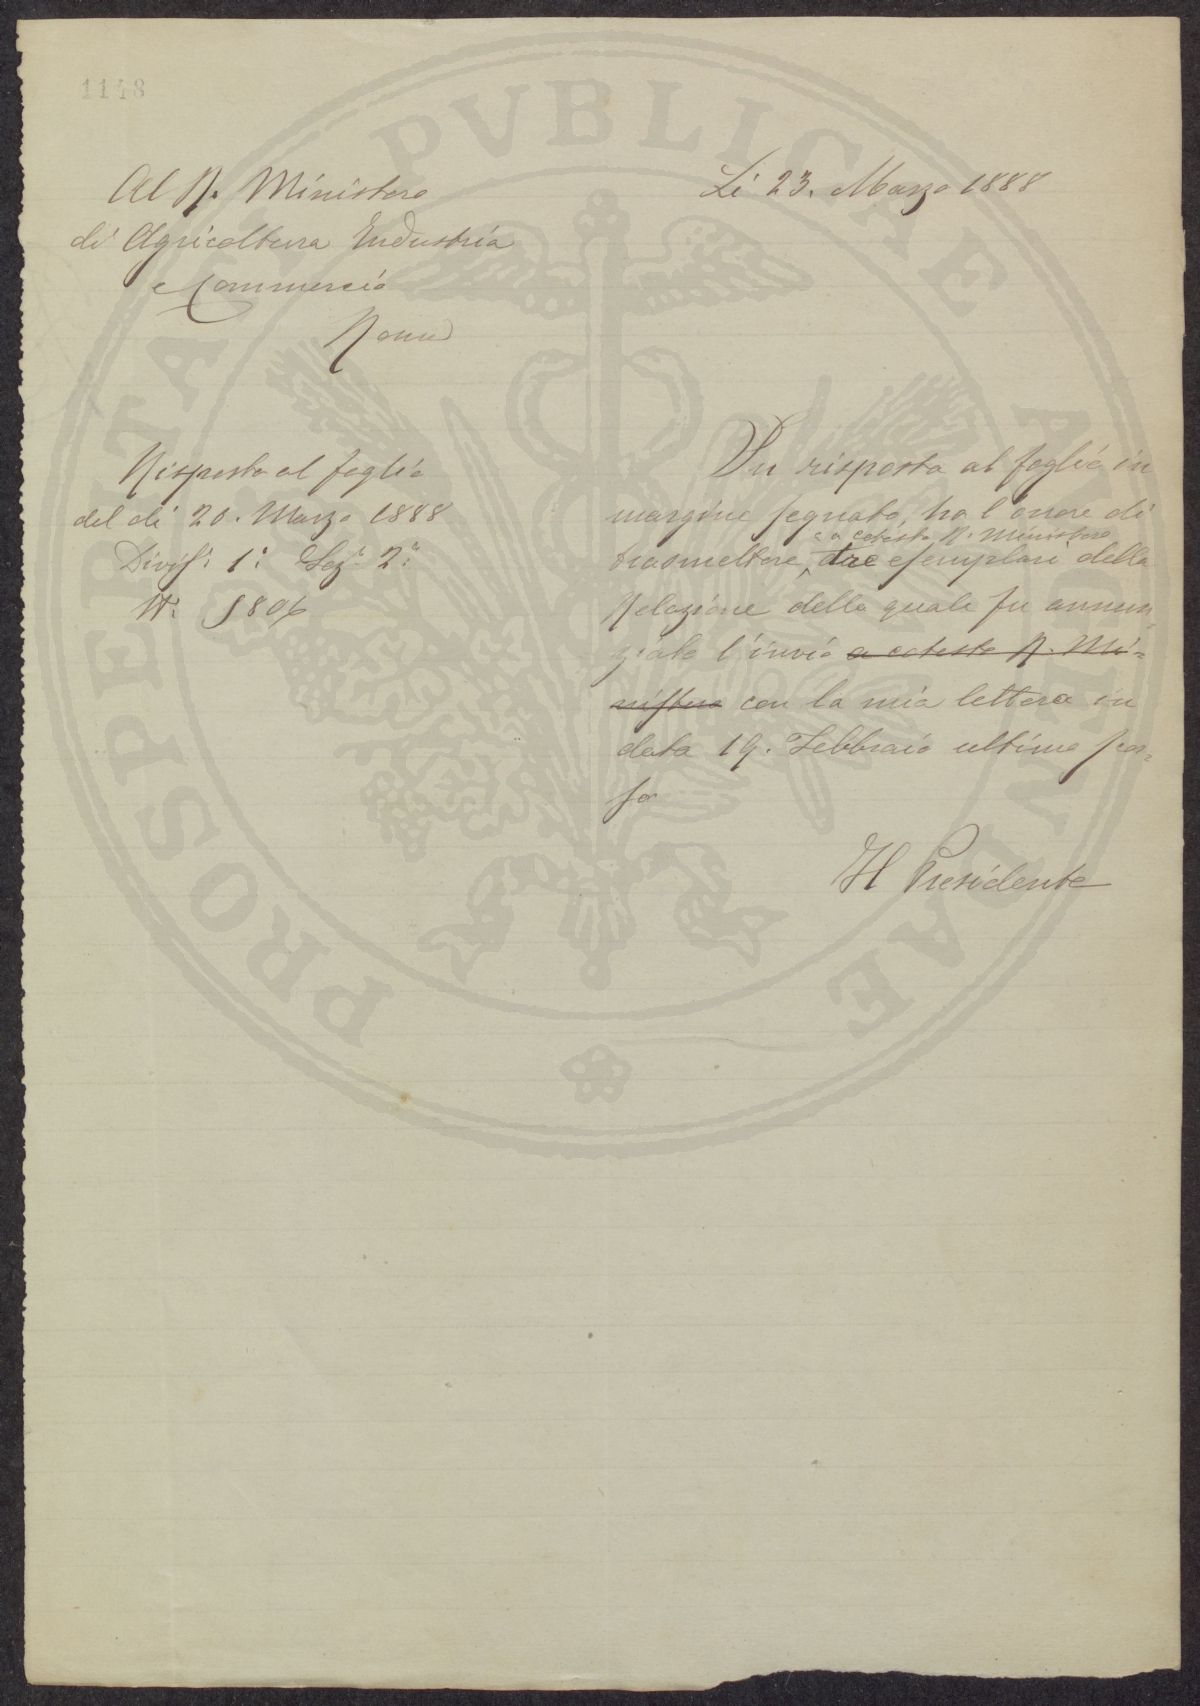 1148
Al R. Ministero
di Agricoltura Industria
e Commercio
Roma
Li 23. Marzo 1888
Risposta al foglio
del dì 20. Marzo 1888
Divisˢ: 1ª: Sezⁿ 2ª:
N. 5806
In risposta al foglio in
margine segnato, ho l'onore di
a cotesto R. Ministero
trasmettere, due esemplari della
Relazione della quale fu annun-
ziato l'invio a cotesto R. Mi-
nistero con la mia lettera in
data 19. Febbraio ultimo scor-
so
Il Presidente
PROSPERITATI PVBLICAE AVGENDAE